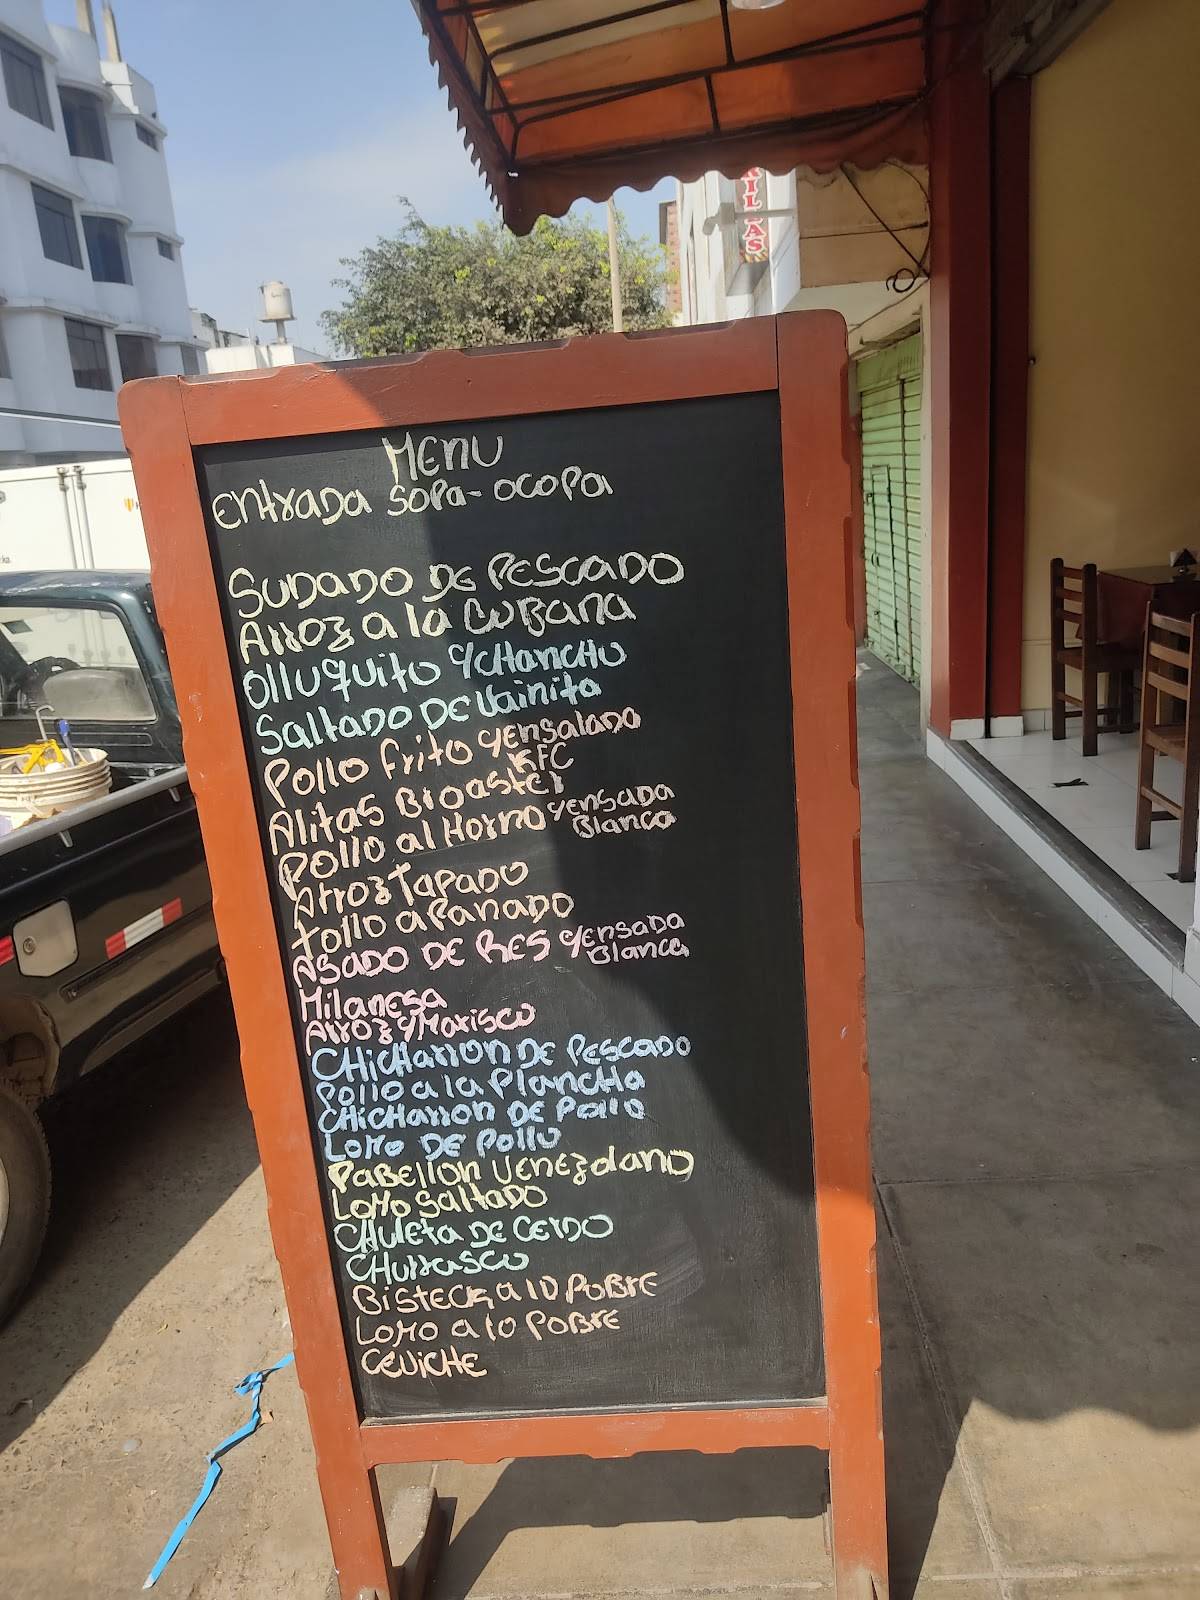 RILLAS
MENU
ENTRADA SOPA - OCOPA
SUDADO DE PESCADO
ARROZ a la CUBANA
OlluQuito c/CHANCHO
Saltado DE Vainita
Pollo frito c/ENSALADA
Alitas Broaster KFC
Pollo al Horno c/ENSADA Blanca
Arroz Tapado
Pollo aPanado
ASADO DE RES c/ENSADA Blanca
Milanesa
Arroz c/Marisco
CHicHarron DE PESCADO
Pollo a la PlancHa
CHicHarron DE Pollo
Lomo DE Pollo
PaBEllon VENEzolano
Lomo Saltado
CHuleta DE CERDO
CHurrasco
BistEck a lo PoBrE
Lomo a lo PoBrE
CEVICHE